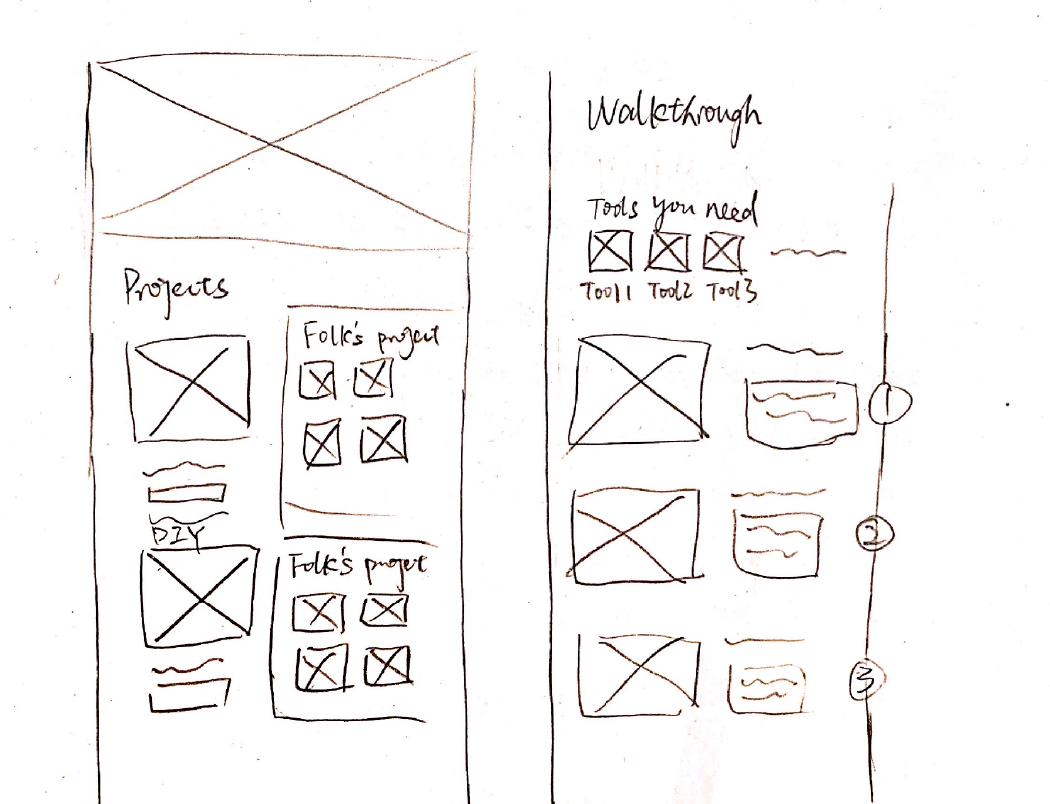 Projects
Folk's project
DIY
Folk's project
Walkthrough
Tools you need
Tool1 Tool2 Tool3
1
2
3